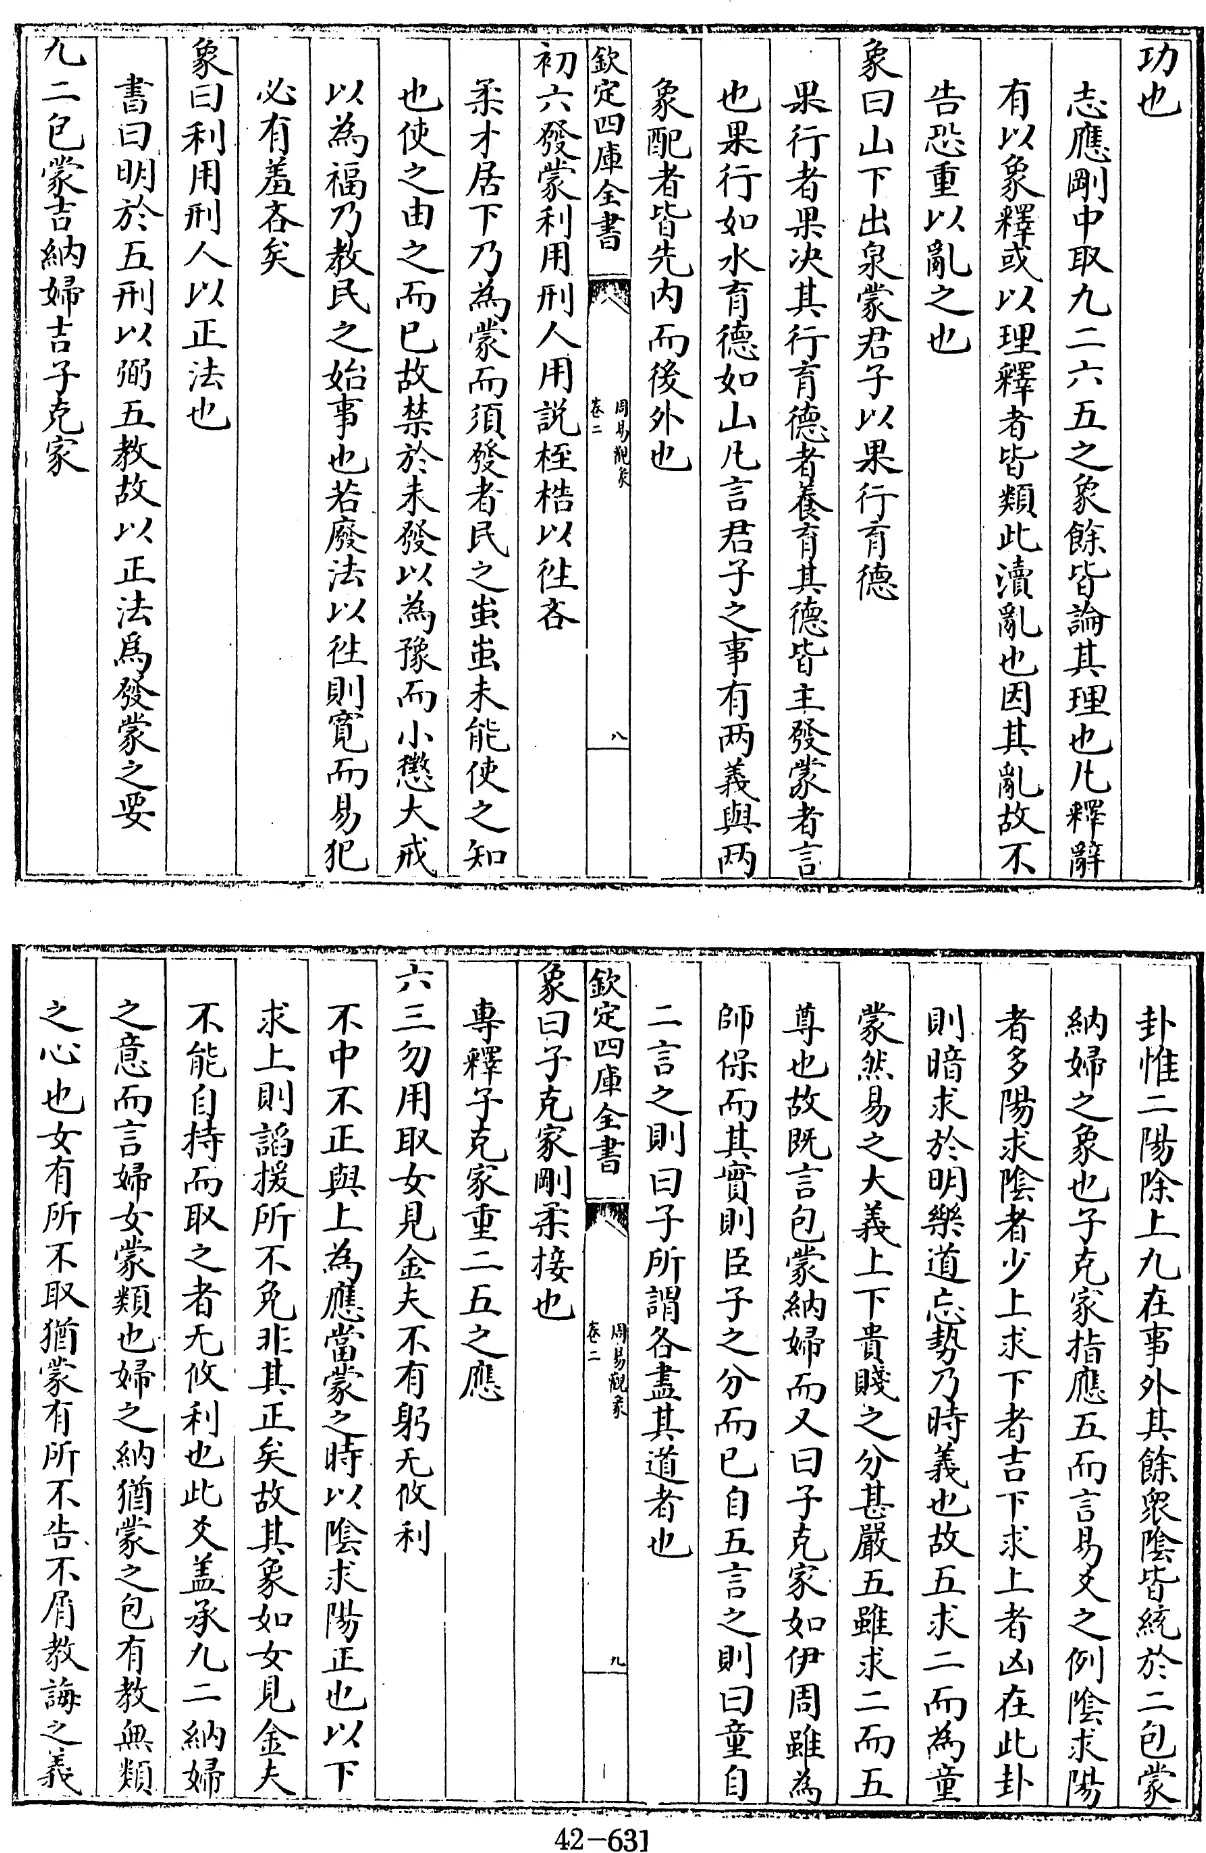 功也
志應剛中取九二六五之象餘皆論其理也凡釋辭
有以象釋或以理釋者皆類此瀆亂也因其亂故不
告恐重以亂之也
象曰山下出泉蒙君子以果行育德
果行者果決其行育德者養育其德皆主發蒙者言
也果行如水育德如山凡言君子之事有兩義與兩
象配者皆先內而後外也
欽定四庫全書
周易觀彖
卷二
八
初六發蒙利用刑人用說桎梏以往吝
柔才居下乃為蒙而須發者民之蚩蚩未能使之知
也使之由之而已故禁於未發以為豫而小懲大戒
以為福乃教民之始事也若廢法以往則寬而易犯
必有羞吝矣
象曰利用刑人以正法也
書曰明於五刑以弼五教故以正法為發蒙之要
九二包蒙吉納婦吉子克家
卦惟二陽除上九在事外其餘衆陰皆統於二包蒙
納婦之象也子克家指應五而言易爻之例陰求陽
者多陽求陰者少上求下者吉下求上者凶在此卦
則暗求於明樂道忘勢乃時義也故五求二而為童
蒙然易之大義上下貴賤之分甚嚴五雖求二而五
尊也故既言包蒙納婦而又曰子克家如伊周雖為
師保而其實則臣子之分而已自五言之則曰童自
二言之則曰子所謂各盡其道者也
欽定四庫全書
周易觀彖
卷二
九
象曰子克家剛柔接也
專釋子克家重二五之應
六三勿用取女見金夫不有躬无攸利
不中不正與上為應當蒙之時以陰求陽正也以下
求上則諂援所不免非其正矣故其象如女見金夫
不能自持而取之者无攸利也此爻蓋承九二納婦
之意而言婦女蒙類也婦之納猶蒙之包有教無類
之心也女有所不取猶蒙有所不告不屑教誨之義
42-631